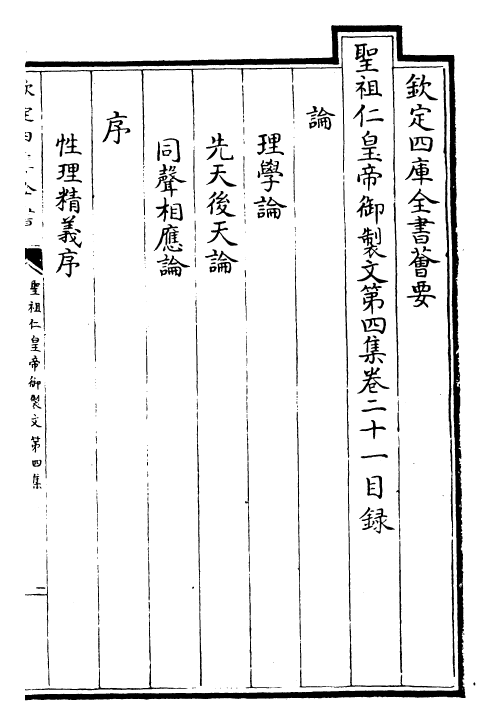 欽定四庫全書薈要
聖祖仁皇帝御製文第四集卷二十一目録
論
理學論
先天後天論
同聲相應論
序
性理精義序
聖祖仁皇帝御製文第四集
一